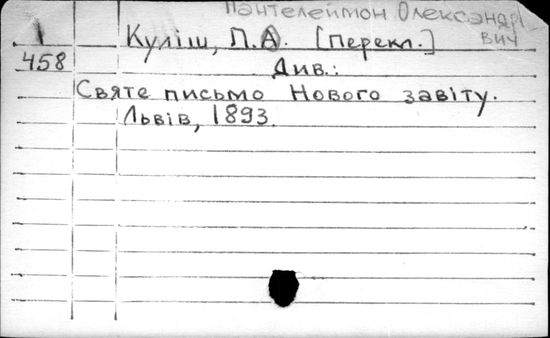 Пантелеймон Олександрі
вич
І Куліш, П.А. [Перекл.]
458 Див.:
Святе письмо Нового завіту.
Львів, 1893.